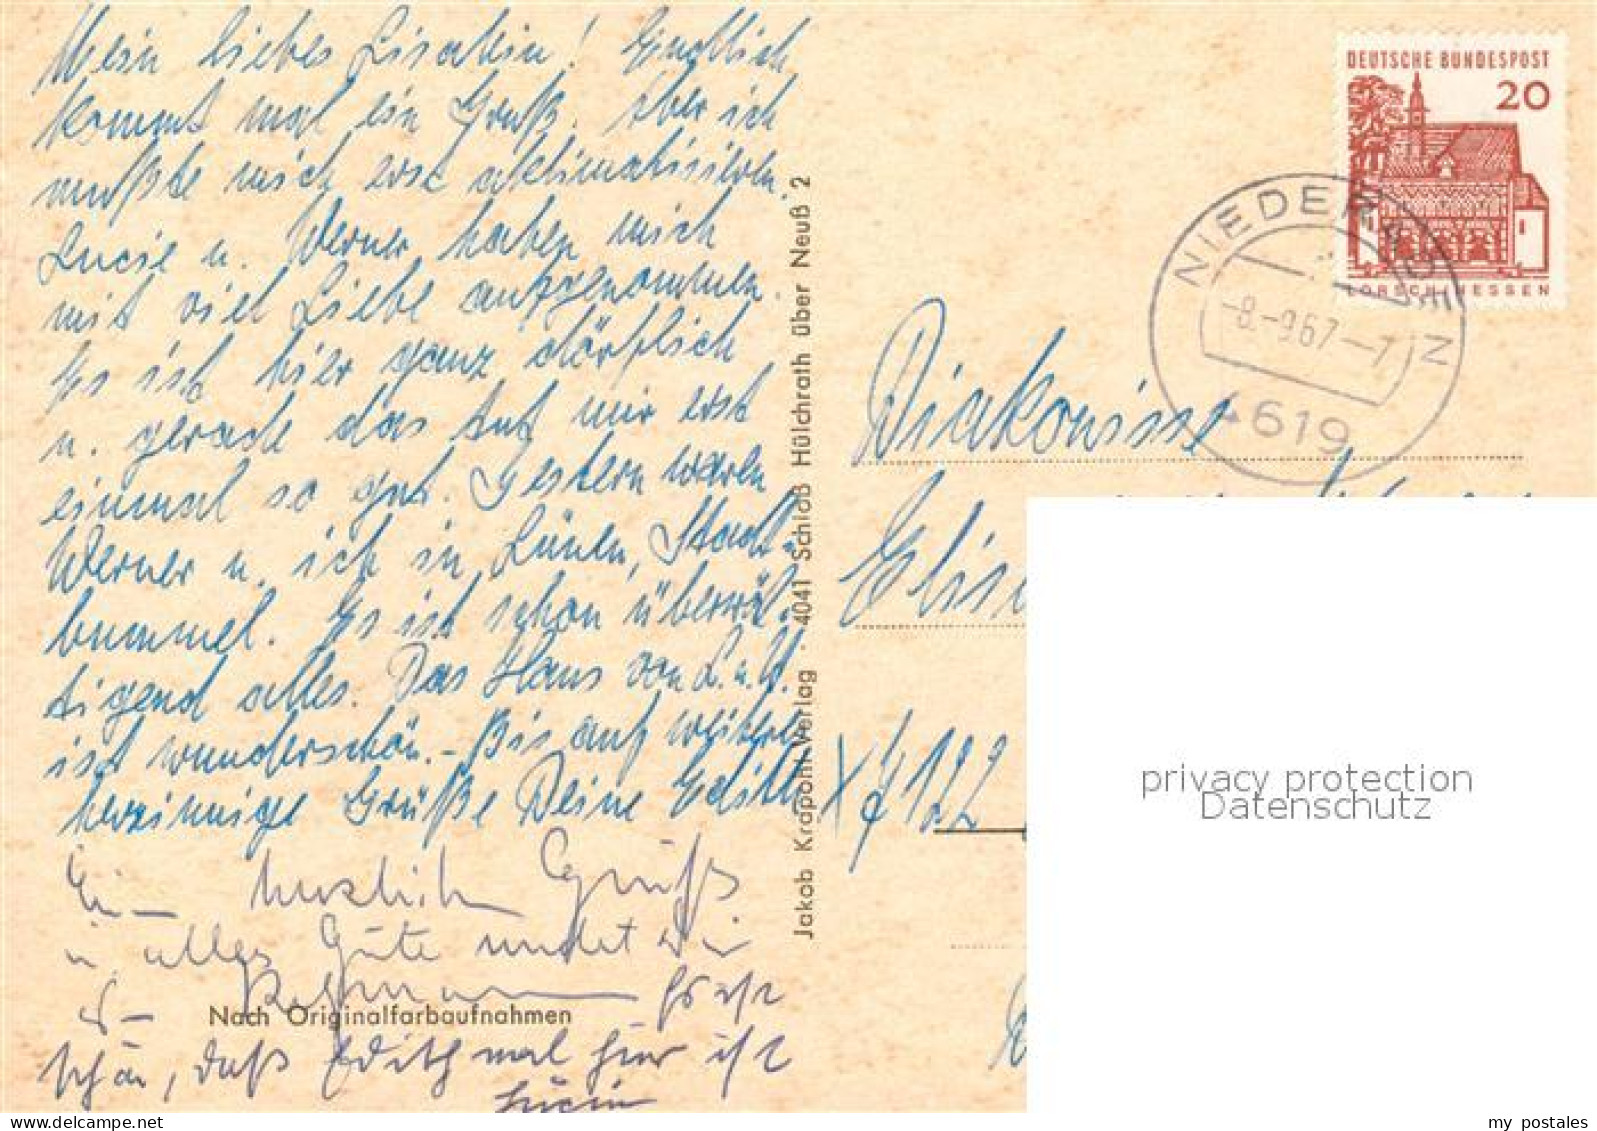 Mein liebes Lisalein! Endlich
kommt mal ein Gruß. Aber ich
mußte mich erst aklimatisieren.
Lucie u. Werner haben mich
mit viel Liebe aufgenommen.
Es ist hier ganz dörflich
u. gerade das tut mir erst
einmal so gut. Gestern waren
Werner u. ich in Lünen, Stadt-
bummel. Es ist schon überwäl-
tigend alles. Das Haus von L. u. W.
ist wunderschön. - Bis auf weitere
herzinnige Grüße Deine Edith
Ein herzlichen Gruß
u alles Gute sendet Dir
Es ist
schön, daß Edith mal hier ist
Lucie
Nach Originalfarbaufnahmen
Jakob Krapohl-Verlag · 4041 Schloß Hülchrath über Neuß 2
DEUTSCHE BUNDESPOST
20
LORSCH/HESSEN
NIEDERADEN
-8.-9.67--7
4619
Diakonisse
X 7122
privacy protection
Datenschutz
my postales